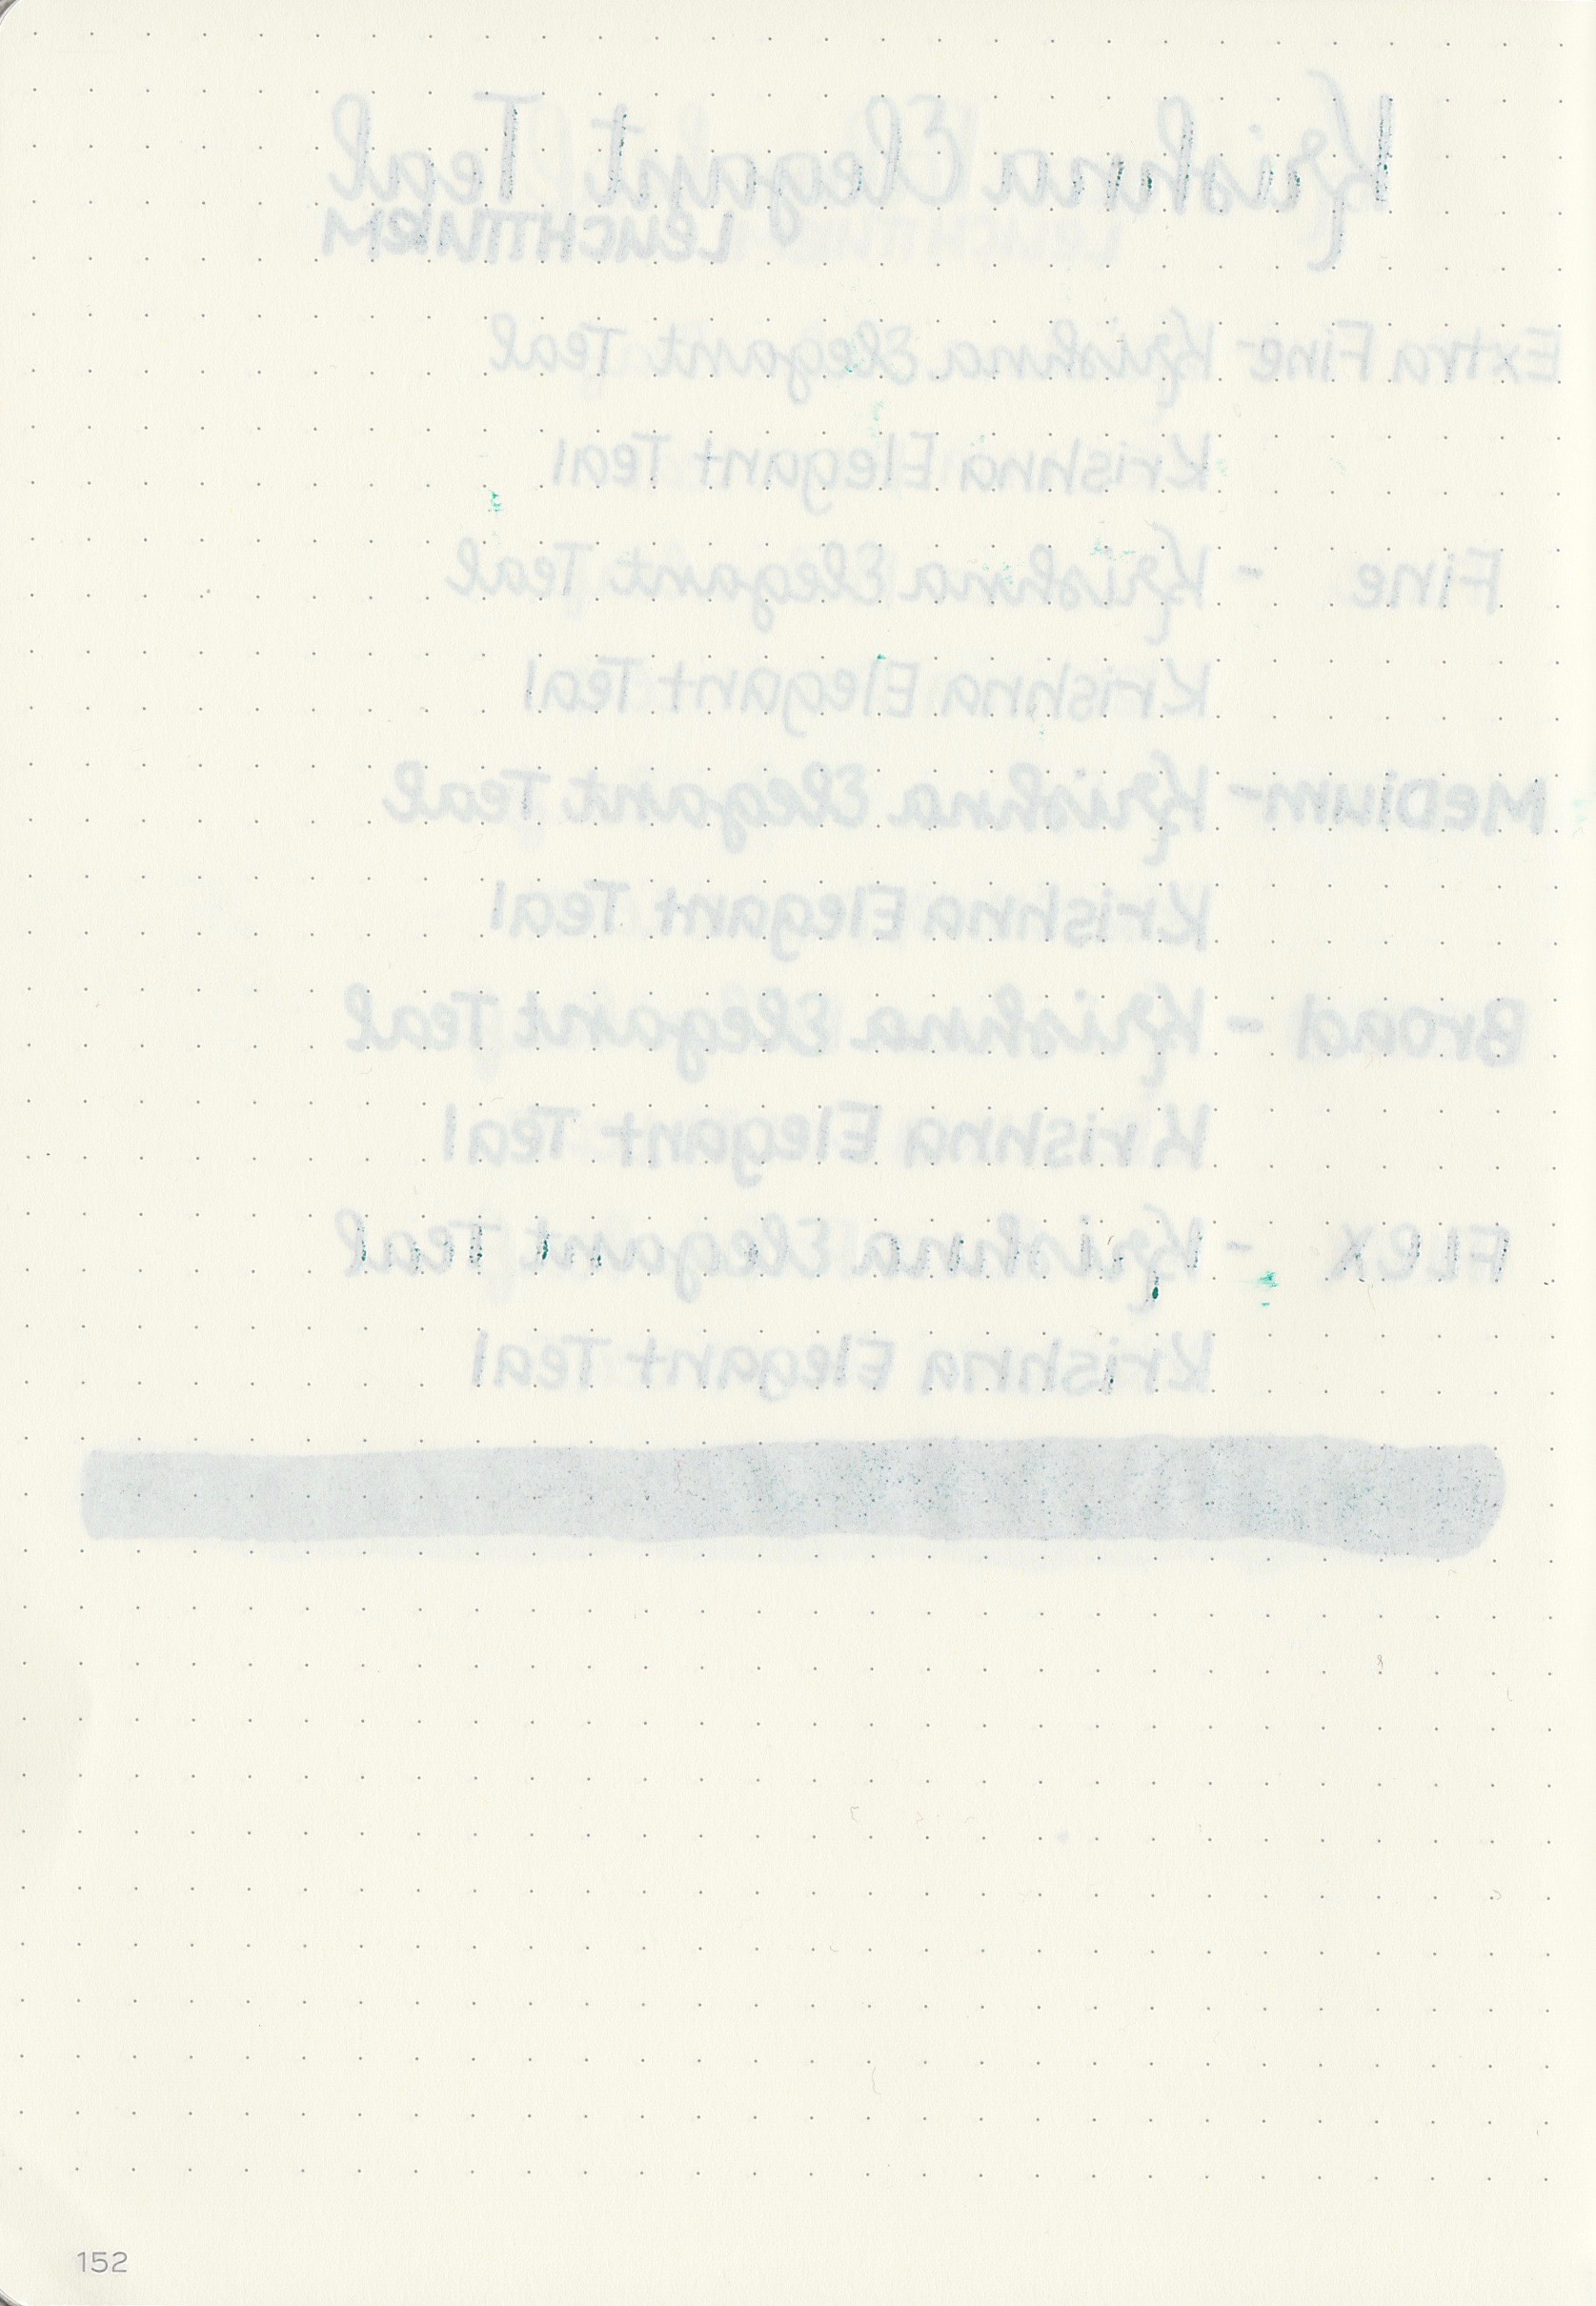 Krishna Elegant Teal
LEUCHTTURM
Extra Fine - Krishna Elegant Teal
Krishna Elegant Teal
Fine - Krishna Elegant Teal
Krishna Elegant Teal
Medium - Krishna Elegant Teal
Krishna Elegant Teal
Broad - Krishna Elegant Teal
Krishna Elegant Teal
Flex - Krishna Elegant Teal
Krishna Elegant Teal
152